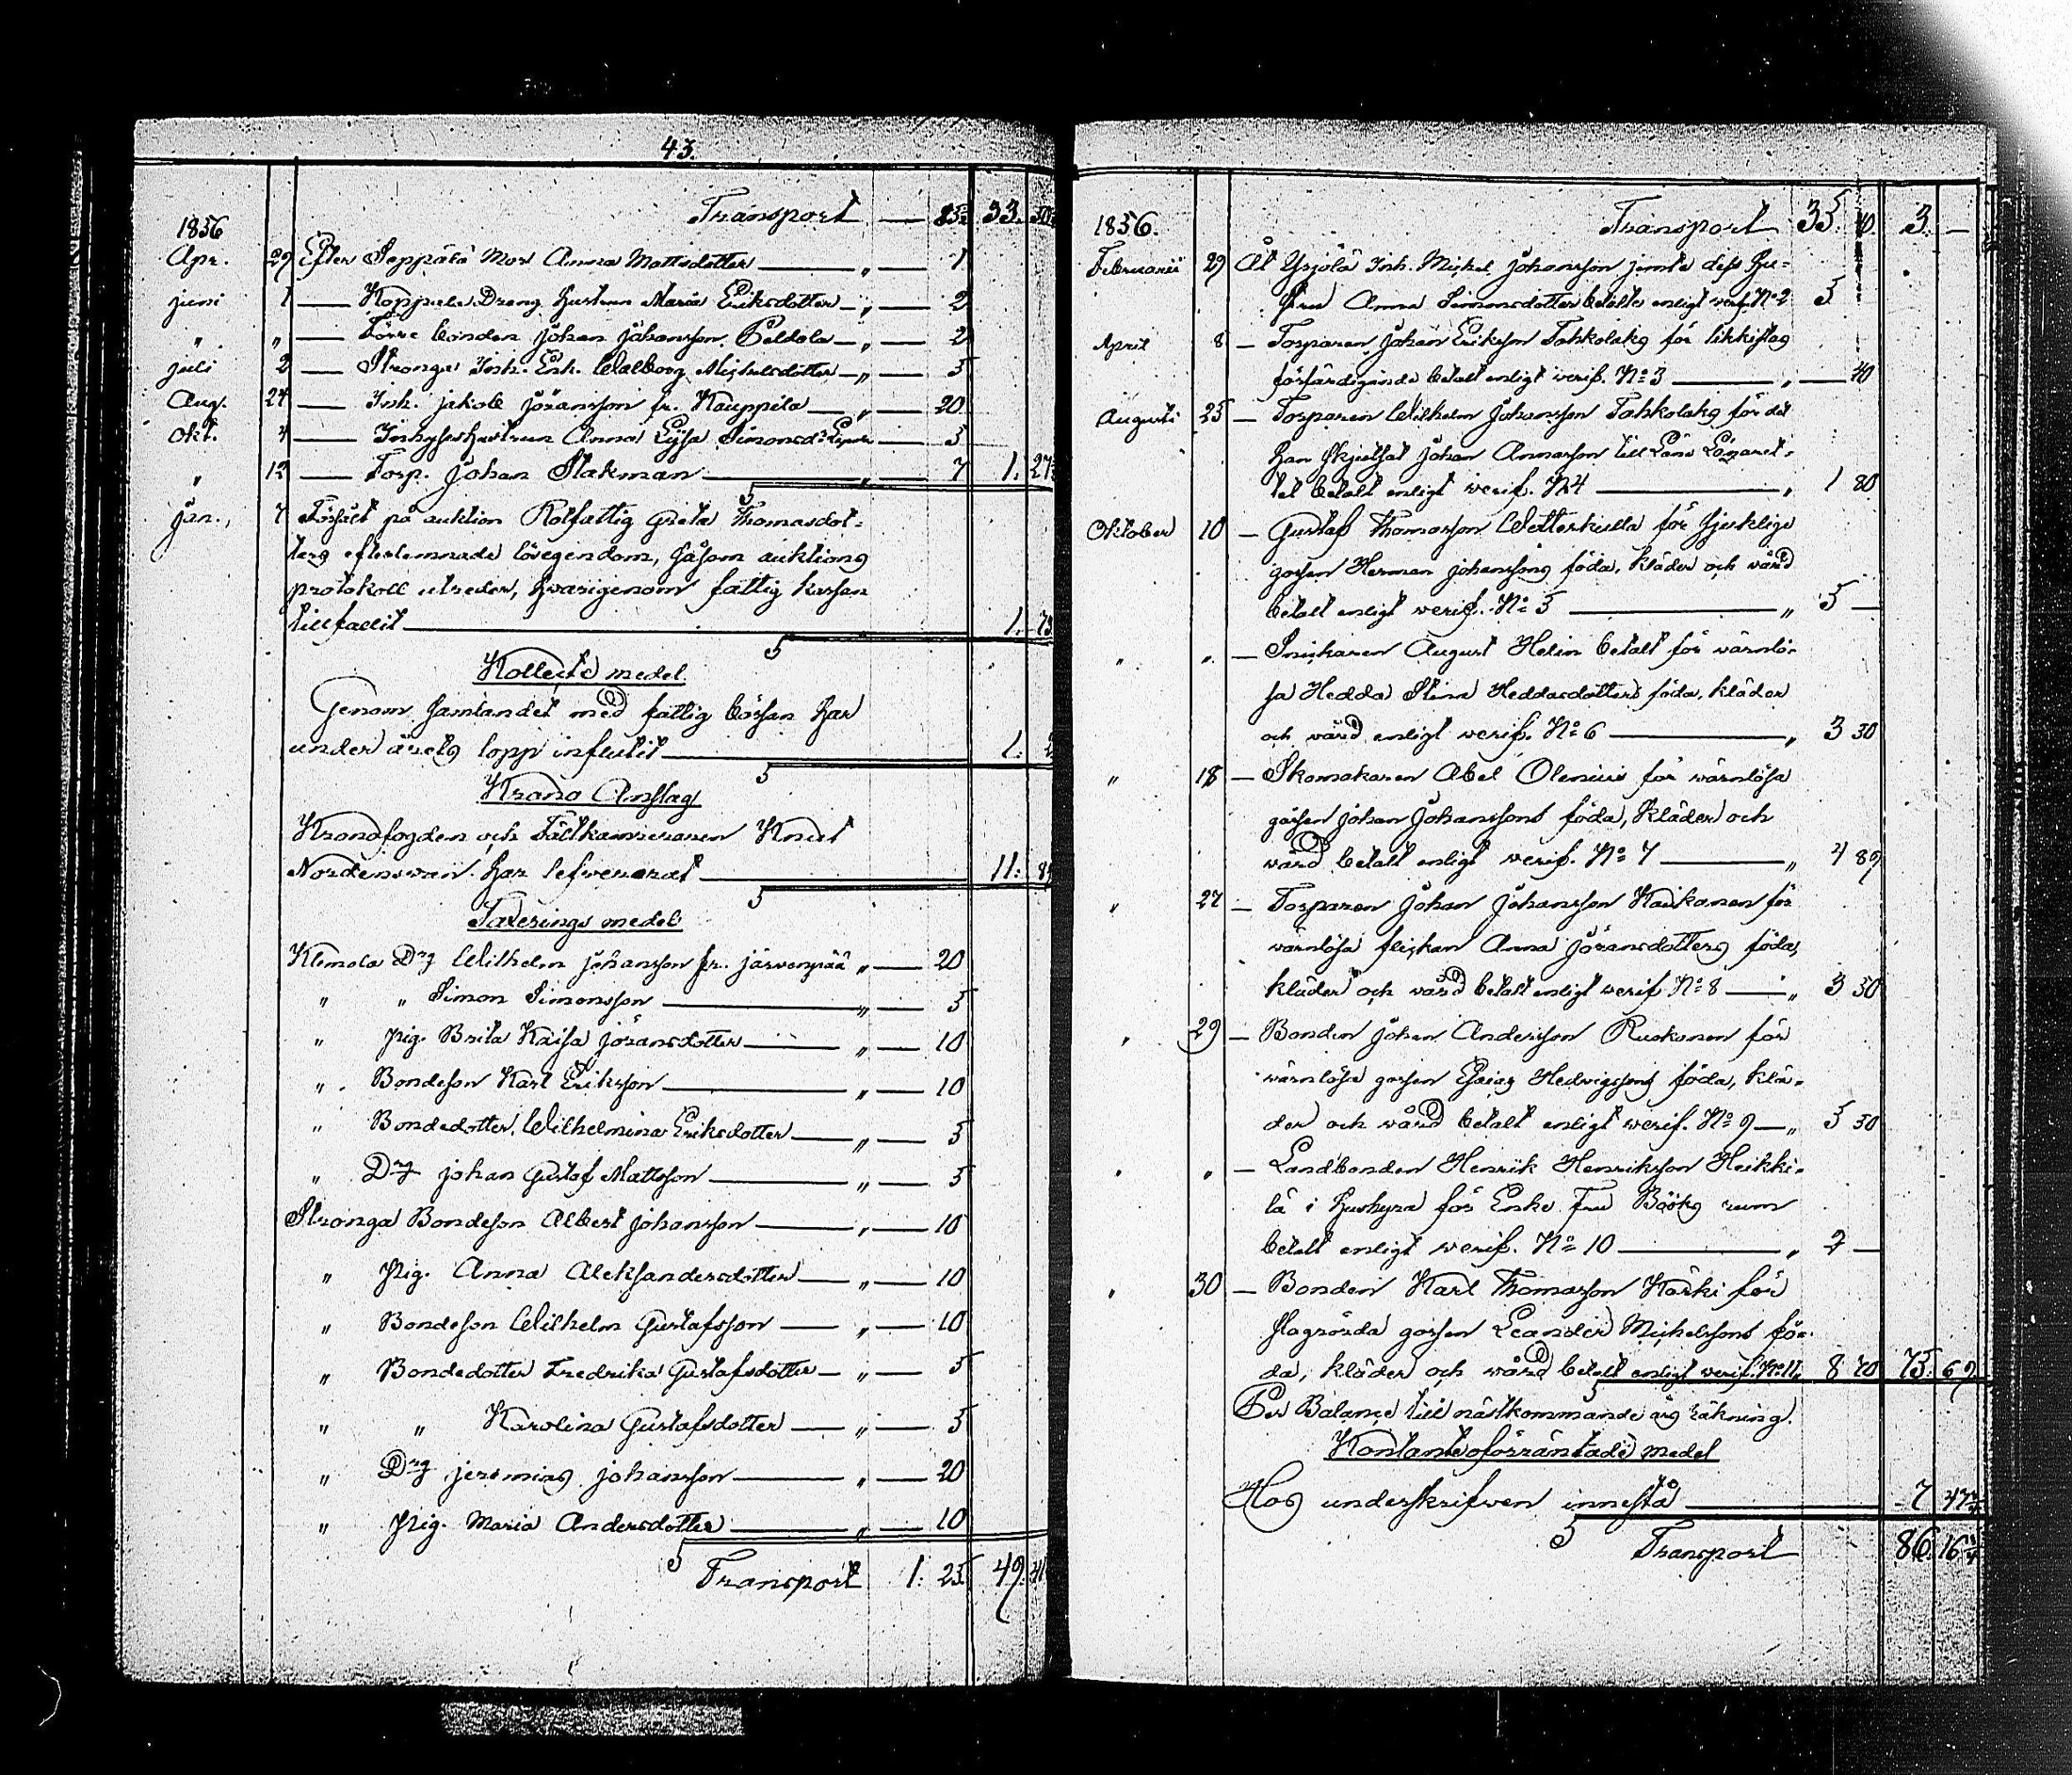 43.
Transport — 85. 33. 50
1856
Apr. 29 Efter Seppälä Mor Anna Mattsdotter — „ — 1
juni 1 — Koppala Dreng hustrun Maria Eriksdotter — „ — 2
„ „ — Förre bonden Johan Johansson Peldola — „ — 2
juli 2 — Stronga Inh. Enk. Walborg Michelsdotter — „ — 5
Aug. 24 — Inh. jakob Jöransson fr. Kauppila — „ — 20
Okt. 4 — Inhyses hustrun Anna Lijsa Simonsd: — 5
„ 12 — Torp. Johan Stakman — „ — 7 1. 27
Jan., 7 Försålt på auktion Rotfattig Greta Thomasdot-
ters efterlemnade lösegendom, såsom auktions
protokoll utreder, hvarigenom fattig kassan
tillfallit — 1. 75
Kollects medel
Genom samlandet med fattig börsan har
under årets lopp influtit — 1: 2
Krono Anslag
Kronofogden och Fältkamreraren Knut
Nordenswan har lefwererat — 11: 89
Taxerings medel
Klemola Drg Wilhelm Johansson fr. järvenpää „ — 20
„ „ Simon Simonsson — „ — 5
„ Pig. Brita Kaisa Jöransdotter — „ — 10
„ Bondeson Karl Eriksson — „ — 10
„ Bondedotter Wilhelmina Eriksdotter — „ — 5
„ Drg johan Gustaf Mattsson — „ — 5
Stronga Bondeson Albert johansson — „ — 10
„ Pig. Anna Aleksandersdotter — „ — 10
„ Bondeson Wilhelm Gustafsson — „ — 10
„ Bondedotter Fredrika Gustafsdotter — „ — 5
„ „ Karolina Gustafsdotter — „ — 5
„ Drg jeremias johansson — „ — 20
„ Pig. Maria Andersdotter — „ — 10
Transport 1: 25. 49. 41
1856. Transport 35. 40. 3. —
Februarii 29 Åt Yrjölä Inh. Mickel Johansson jemte dess hu-
stru Anna Simonsdotter betalts enligt verif. No 2 5
April 8 — Torparen Johan Eriksson Tahkolaks för likkistas
förfärdigande betalt enligt verif. No 3 — „ — 40
Augusti 25 — Torparen Wilhelm Johansson Tahkolaks för det
han skjutsat Johan Annasson till Läns Lazaret-
tet betalt enligt verif. No 4 — „ 1 80
Oktober 10 — Gustaf Thomasson Wetterkulla för sjuklige
gossen Herman Johanssons föda, kläder och vård
betalt enligt verif. No 5 — „ 5 —
„ „ — Snickaren August Helin betalt för värnlö-
sa Hedda Stina Heddasdotters föda, kläder
och wård enligt verif. No 6 — „ 3 30
„ 18 — Skomakaren Abel Olenius för wärnlösa
gossen johan Johanssons föda, kläder och
wård betalt enligt verif. No 7 — „ 4 89
„ 27 — Torparen Johan Johansson Kaukonen för
wärnlösa flickan Anna Jöransdotters föda,
kläder och wård betalt enligt verif. No 8 — „ 3 30
„ 29 — Bonden Johan Andersson Ruokonen för
wärnlösa gossen Esaias Hedvigssons föda, klä-
der och wård betalt enligt werif. No 9 — „ 5 30
„ „ — Landbonden Henrik Henriksson Heikki-
lä i hushyra för Enke Fru Bööks rum
betalt enligt werif. No 10 — „ 2 —
„ 30 — Bonden Karl Thomasson Kärki för
slagrörda gossen Leander Michelssons fö-
da, kläder och wård betalt enligt werif. No 11, 8 70 75. 69
Per Balance till nästkommande års räkning.
Kontante oförräntade medel
Hos underskrifwen innestå — 7 47
Transport 86. 16